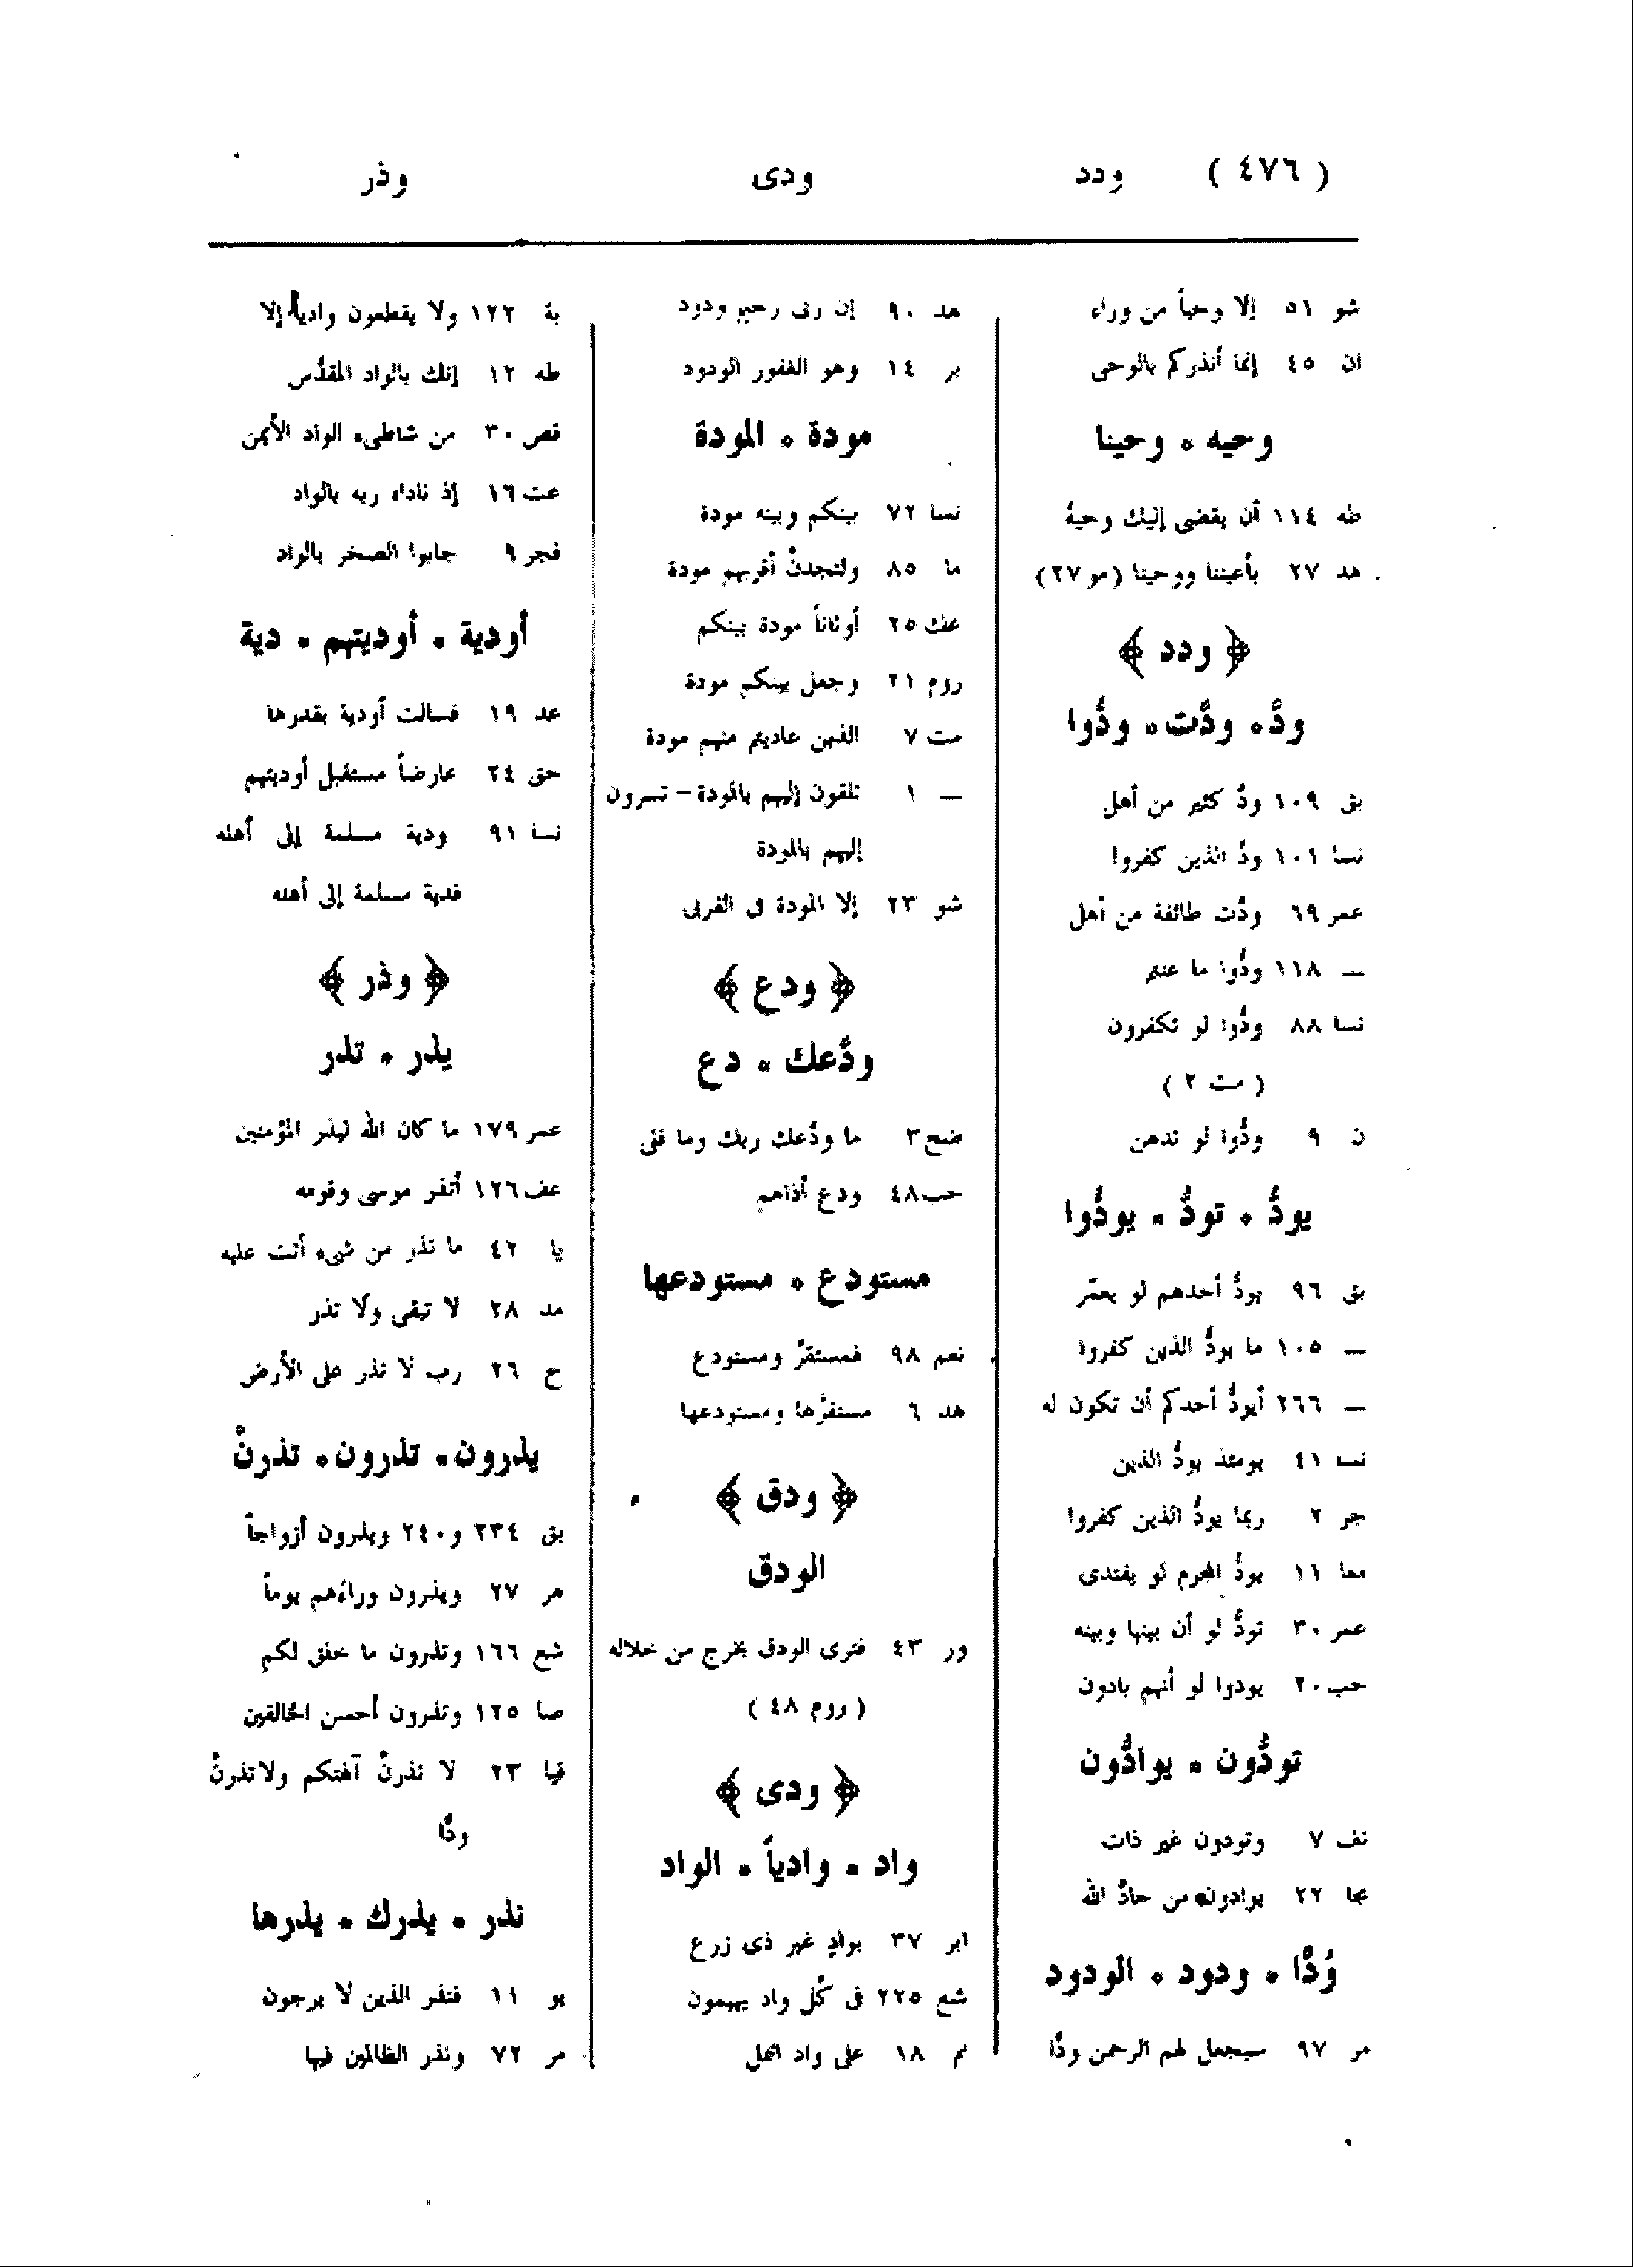 ( ٤٧٦ ) ودد ودى وذر
شو ٥١ إلا وحياً من وراء
ان ٤٥ إنما أنذركم بالوحى
وحيه ٠ وحينا
طه ١١٤ أن يقضى إليك وحيهُ
هد ٢٧ بأعيننا ووحينا (مو ٢٧)
﴿ ودد ﴾
ودَّ ٠ ودَّت ٠ ودُّوا
بق ١٠٩ ودَّ كثير من أهل
نسا ١٠١ ودَّ الذين كفروا
عمر ٦٩ ودَّت طائفة من أهل
— ١١٨ ودُّوا ما عنتم
نسا ٨٨ ودُّوا لو تكفرون
( مت ٢ )
ن ٩ ودُّوا لو تدهن
يودُّ ٠ تودُّ ٠ يودُّوا
بق ٩٦ يودُّ أحدهم لو يعمّر
— ١٠٥ ما يودُّ الذين كفروا
— ٢٦٦ أيودُّ أحدكم أن تكون له
نسا ٤١ يومئذ يودُّ الذين
جر ٢ ربما يودُّ الذين كفروا
معا ١١ يودُّ المجرم لو يفتدى
عمر ٣٠ تودُّ لو أن بينها وبينه
حب ٢٠ يودوا لو أنهم بادون
تودُّون ٠ يوادُّون
نف ٧ وتودون غير ذات
مجا ٢٢ يوادون من حادَّ الله
وُدًّا ٠ ودود ٠ الودود
مر ٩٧ سيجعل لهم الرحمن ودًّا
هد ٩٠ إن ربى رحيم ودود
بر ١٤ وهو الغفور الودود
مودة ٠ المودة
نسا ٧٢ بينكم وبينه مودة
ما ٨٥ ولتجدنَّ أقربهم مودة
عنك ٢٥ أوثاناً مودة بينكم
روم ٢١ وجعل بينكم مودة
مت ٧ الذين عاديتم منهم مودة
— ١ تلقون إليهم بالمودة – تسرون
إليهم بالمودة
شو ٢٣ إلا المودة فى القربى
﴿ ودع ﴾
ودَّعك ٠ دع
ضح ٣ ما ودَّعك ربك وما قلى
حب ٤٨ ودع أذاهم
مستودع ٠ مستودعها
نعم ٩٨ فمستقرٌّ ومستودع
هد ٦ مستقرَّها ومستودعها
﴿ ودق ﴾
الودق
ور ٤٣ فترى الودق يخرج من خلاله
( روم ٤٨ )
﴿ ودى ﴾
واد ٠ وادياً ٠ الواد
ابر ٣٧ بوادٍ غير ذى زرع
شع ٢٢٥ فى كُل واد يهيمون
نم ١٨ على واد النمل
بة ١٢٢ ولا يقطعون وادياً إلا
طه ١٢ إنك بالواد المقدَّس
قص ٣٠ من شاطىء الواد الأيمن
عت ١٦ إذ ناداه ربه بالواد
فجر ٩ جابوا الصخر بالواد
أودية ٠ أوديتهم ٠ دية
عد ١٩ فسالت أودية بقدرها
حق ٢٤ عارضاً مستقبل أوديتهم
نسا ٩١ ودية مسلمة إلى أهله
فدية مسلمة إلى أهله
﴿ وذر ﴾
يذر ٠ تذر
عمر ١٧٩ ما كان الله ليذر المؤمنين
عف ١٢٦ أتذر موسى وقومه
يا ٤٢ ما تذر من شىء أتت عليه
مد ٢٨ لا تبقى ولا تذر
ح ٢٦ رب لا تذر على الأرض
يذرون ٠ تذرون ٠ تذرنَّ
بق ٢٣٤ و٢٤٠ ويذرون أزواجاً
هر ٢٧ ويذرون وراءهم يوماً
شع ١٦٦ وتذرون ما خلق لكم
صا ١٢٥ وتذرون أحسن الخالقين
قيا ٢٣ لا تذرنَّ آلهتكم ولا تذرنَّ
ودًّا
نذر ٠ يذرك ٠ يذرها
يو ١١ فنذر الذين لا يرجون
مر ٧٢ ونذر الظالمين فيها